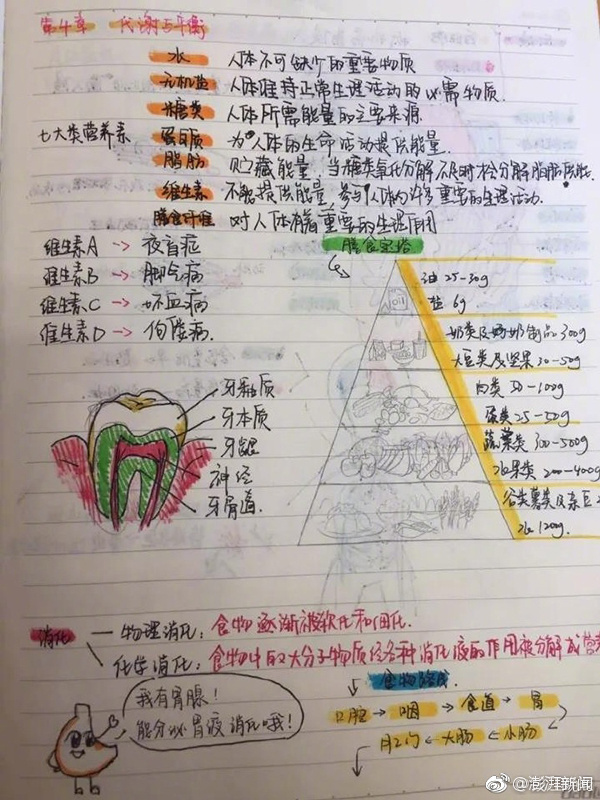 第4章 代谢与平衡
水 人体不可缺少的重要物质
无机盐 人体维持正常生理活动的必需物质.
糖类 人体所需能量的主要来源
七大类营养素 蛋白质 为人体的生命活动提供能量.
脂肪 贮藏能量,当糖类氧化分解不足时
维生素 不能提供能量,参与人体的许多重要的生理活动.
膳食纤维 对人体有着重要的生理作用
维生素A → 夜盲症
维生素B → 脚气病
维生素C → 坏血病
维生素D → 佝偻病.
膳食宝塔
油 25-30g
盐 6g
奶类及奶制品 300g
大豆类及坚果 30-50g
肉类 50-100g
蛋类 25-50g
蔬菜类 300-500g
水果类 200-400g
谷类薯类及杂豆
水 1200g.
牙釉质
牙本质
牙龈
神经
牙骨道.
消化
物理消化: 食物逐渐被软化和细化.
化学消化: 食物中的大分子物质经各种消化液的作用被分解成营
食物路线.
口腔 → 咽 → 食道 → 胃
肛门 ← 大肠 ← 小肠
我有胃腺!
能分泌胃液消化哦!
@澎湃新闻